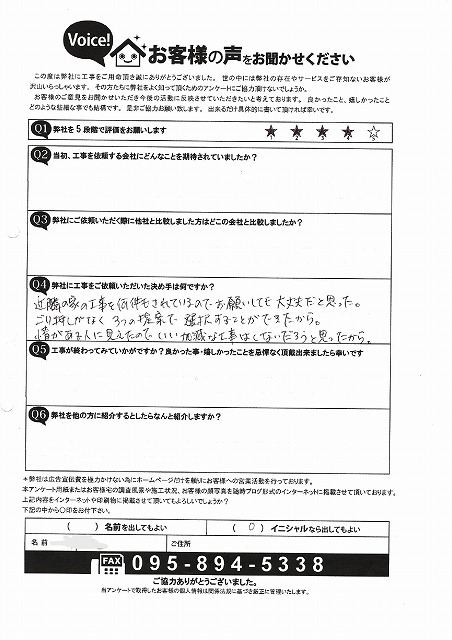 Voice!
お客様の声をお聞かせください
この度は弊社に工事をご用命頂き誠にありがとうございました。世の中には弊社の存在やサービスをご存知ないお客様が
沢山いらっしゃいます。その方たちに弊社をよく知って頂くためのアンケートにご協力頂けないでしょうか。
お客様のご意見をお聞かせいただき今後の活動に反映させていただきたいと考えております。良かったこと、嬉しかったこと
どのような些細な事でも結構です。是非ご協力お願い致します。出来るだけ具体的に書いて頂ければ幸いです。
Q1 弊社を5段階で評価をお願いします ★ ★ ★ ★ ☆
1 2 3 4 5
Q2 当初、工事を依頼する会社にどんなことを期待されていましたか？
Q3 弊社にご依頼いただく際に他社と比較しました方はどこの会社と比較しましたか？
Q4 弊社に工事をご依頼いただいた決め手は何ですか？
近隣の家の工事を何件もされているのでお願いしても大丈夫だと思った。
ごり押しがなく3つの提案で選択することができたから。
情がある人に見えたのでいい加減な工事はしないだろうと思ったから。
Q5 工事が終わってみていかがですか？良かった事・嬉しかったことを忌憚なく頂戴出来ましたら幸いです
Q6 弊社を他の方に紹介するとしたらなんと紹介しますか？
＊弊社は広告宣伝費を極力かけない為にホームページだけを頼りにお客様への営業活動を行っております。
本アンケート用紙またはお客様宅の調査風景や施工状況、お客様の顔写真を随時ブログ形式のインターネットに掲載させて頂いております。
上記内容をインターネットや印刷物に掲載させて頂いてもよろしいでしょうか？
下記の中から〇印をお付下さい。
（　）名前を出してもよい （ 〇 ）イニシャルなら出してもよい
名前 ご住所
FAX 095-894-5338
ご協力ありがとうございました。
当アンケートで取得したお客様の個人情報は関係法規に基づき厳正に管理いたします。